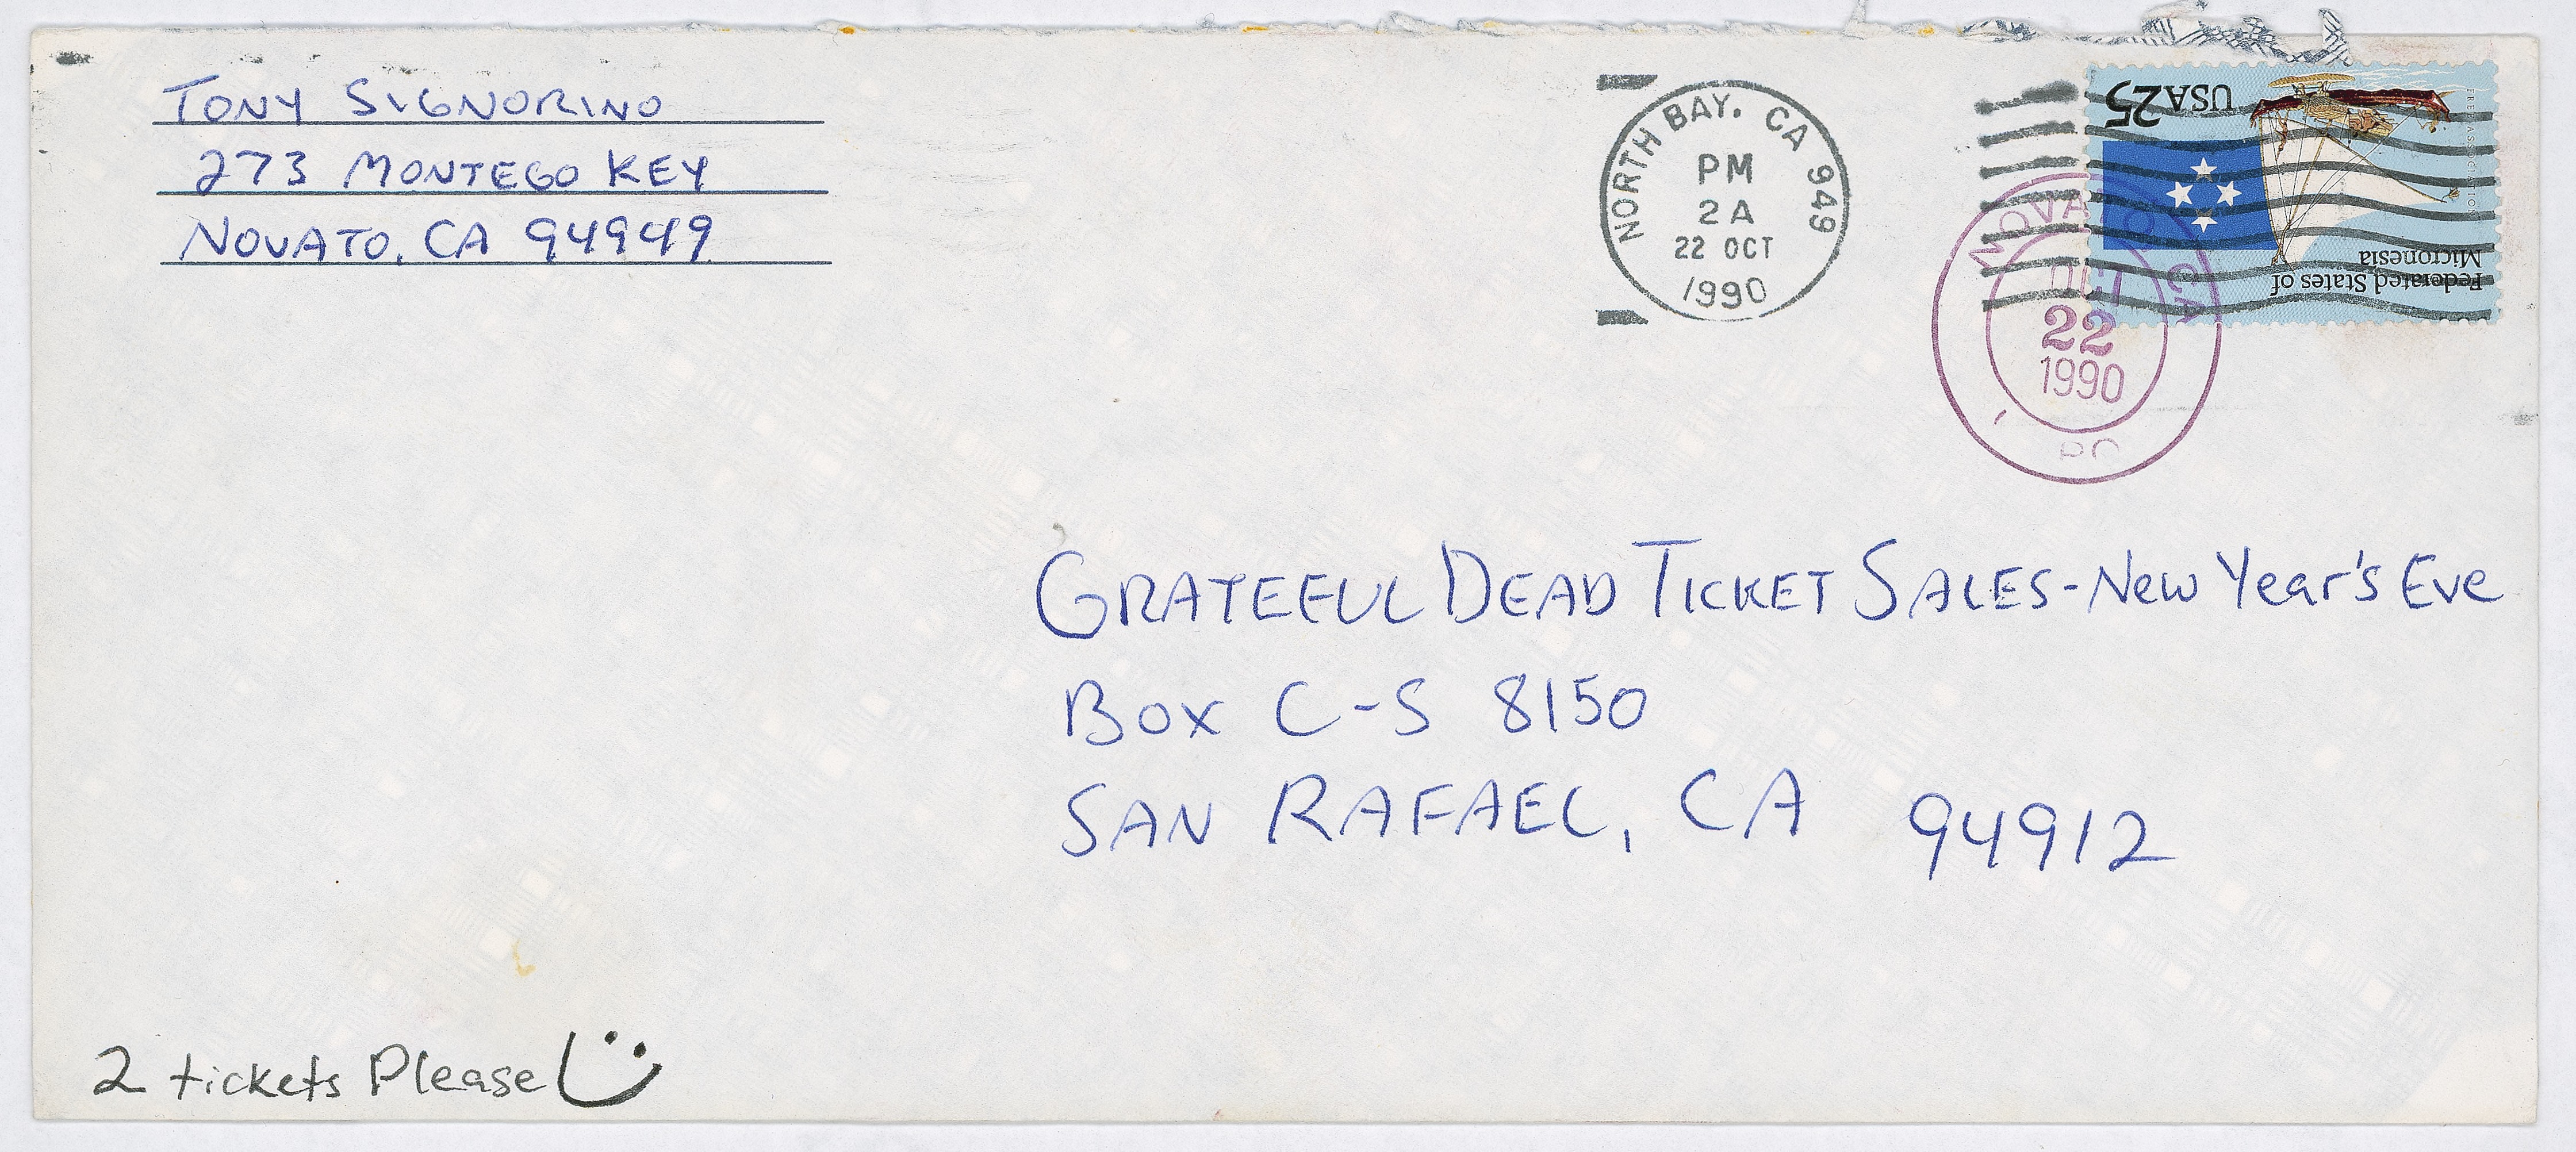 TONY SIGNORINO
273 MONTEGO KEY
NOVATO, CA 94949
NORTH BAY, CA 949
PM
2A
22 OCT
1990
USA25
Federated States of
Micronesia
NOVATO CA
OCT
22
1990
PO
GRATEFUL DEAD TICKET SALES-New Year's Eve
Box C-S 8150
SAN RAFAEL, CA 94912
2 tickets Please